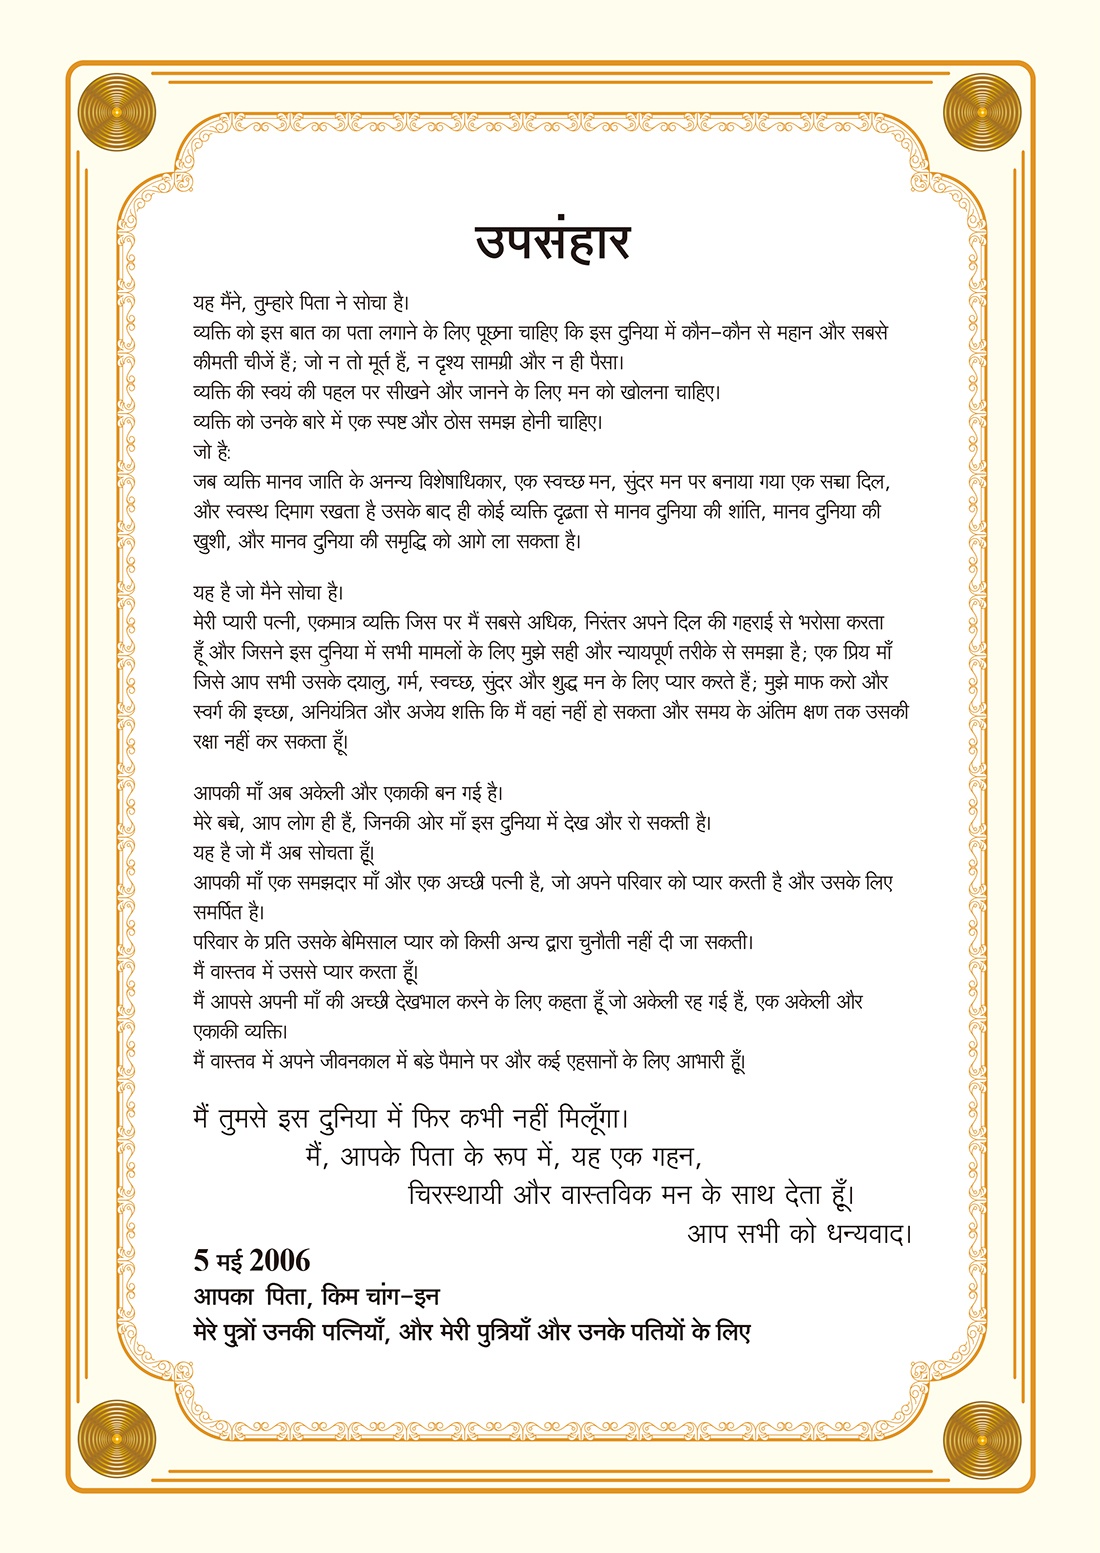 उपसंहार
यह मैंने, तुम्हारे पिता ने सोचा है।
व्यक्ति को इस बात का पता लगाने के लिए पूछना चाहिए कि इस दुनिया में कौन-कौन से महान और सबसे
कीमती चीजें हैं; जो न तो मूर्त हैं, न दृश्य सामग्री और न ही पैसा।
व्यक्ति की स्वयं की पहल पर सीखने और जानने के लिए मन को खोलना चाहिए।
व्यक्ति को उनके बारे में एक स्पष्ट और ठोस समझ होनी चाहिए।
जो है:
जब व्यक्ति मानव जाति के अनन्य विशेषाधिकार, एक स्वच्छ मन, सुंदर मन पर बनाया गया एक सच्चा दिल,
और स्वस्थ दिमाग रखता है उसके बाद ही कोई व्यक्ति दृढ़ता से मानव दुनिया की शांति, मानव दुनिया की
खुशी, और मानव दुनिया की समृद्धि को आगे ला सकता है।
यह है जो मैने सोचा है।
मेरी प्यारी पत्नी, एकमात्र व्यक्ति जिस पर मैं सबसे अधिक, निरंतर अपने दिल की गहराई से भरोसा करता
हूँ और जिसने इस दुनिया में सभी मामलों के लिए मुझे सही और न्यायपूर्ण तरीके से समझा है; एक प्रिय माँ
जिसे आप सभी उसके दयालु, गर्म, स्वच्छ, सुंदर और शुद्ध मन के लिए प्यार करते हैं; मुझे माफ करो और
स्वर्ग की इच्छा, अनियंत्रित और अजेय शक्ति कि मैं वहां नहीं हो सकता और समय के अंतिम क्षण तक उसकी
रक्षा नहीं कर सकता हूँ।
आपकी माँ अब अकेली और एकाकी बन गई है।
मेरे बच्चे, आप लोग ही हैं, जिनकी ओर माँ इस दुनिया में देख और रो सकती है।
यह है जो मैं अब सोचता हूँ।
आपकी माँ एक समझदार माँ और एक अच्छी पत्नी है, जो अपने परिवार को प्यार करती है और उसके लिए
समर्पित है।
परिवार के प्रति उसके बेमिसाल प्यार को किसी अन्य द्वारा चुनौती नहीं दी जा सकती।
मैं वास्तव में उससे प्यार करता हूँ।
मैं आपसे अपनी माँ की अच्छी देखभाल करने के लिए कहता हूँ जो अकेली रह गई हैं, एक अकेली और
एकाकी व्यक्ति।
मैं वास्तव में अपने जीवनकाल में बडे़ पैमाने पर और कई एहसानों के लिए आभारी हूँ।
मैं तुमसे इस दुनिया में फिर कभी नहीं मिलूँगा।
मैं, आपके पिता के रूप में, यह एक गहन,
चिरस्थायी और वास्तविक मन के साथ देता हूँ।
आप सभी को धन्यवाद।
5 मई 2006
आपका पिता, किम चांग-इन
मेरे पुत्रों उनकी पत्नियाँ, और मेरी पुत्रियाँ और उनके पतियों के लिए